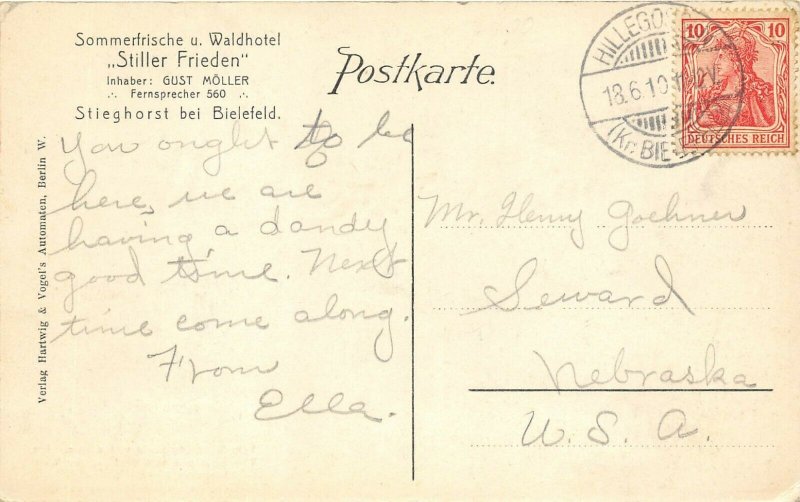 Sommerfrische u. Waldhotel
„Stiller Frieden"
Inhaber: GUST MÖLLER
.·. Fernsprecher 560 .·.
Stieghorst bei Bielefeld.
Postkarte.
HILLEGOS
18.6.10
V.
(Kr. BIE
10 10
DEUTSCHES REICH
Verlag Hartwig & Vogel's Automaten, Berlin W.
You ought to be
here, we are
having a dandy
good time. Next
time come along.
From
Ella.
Mr. Henry Goehner
Seward
Nebraska
U. S. A.